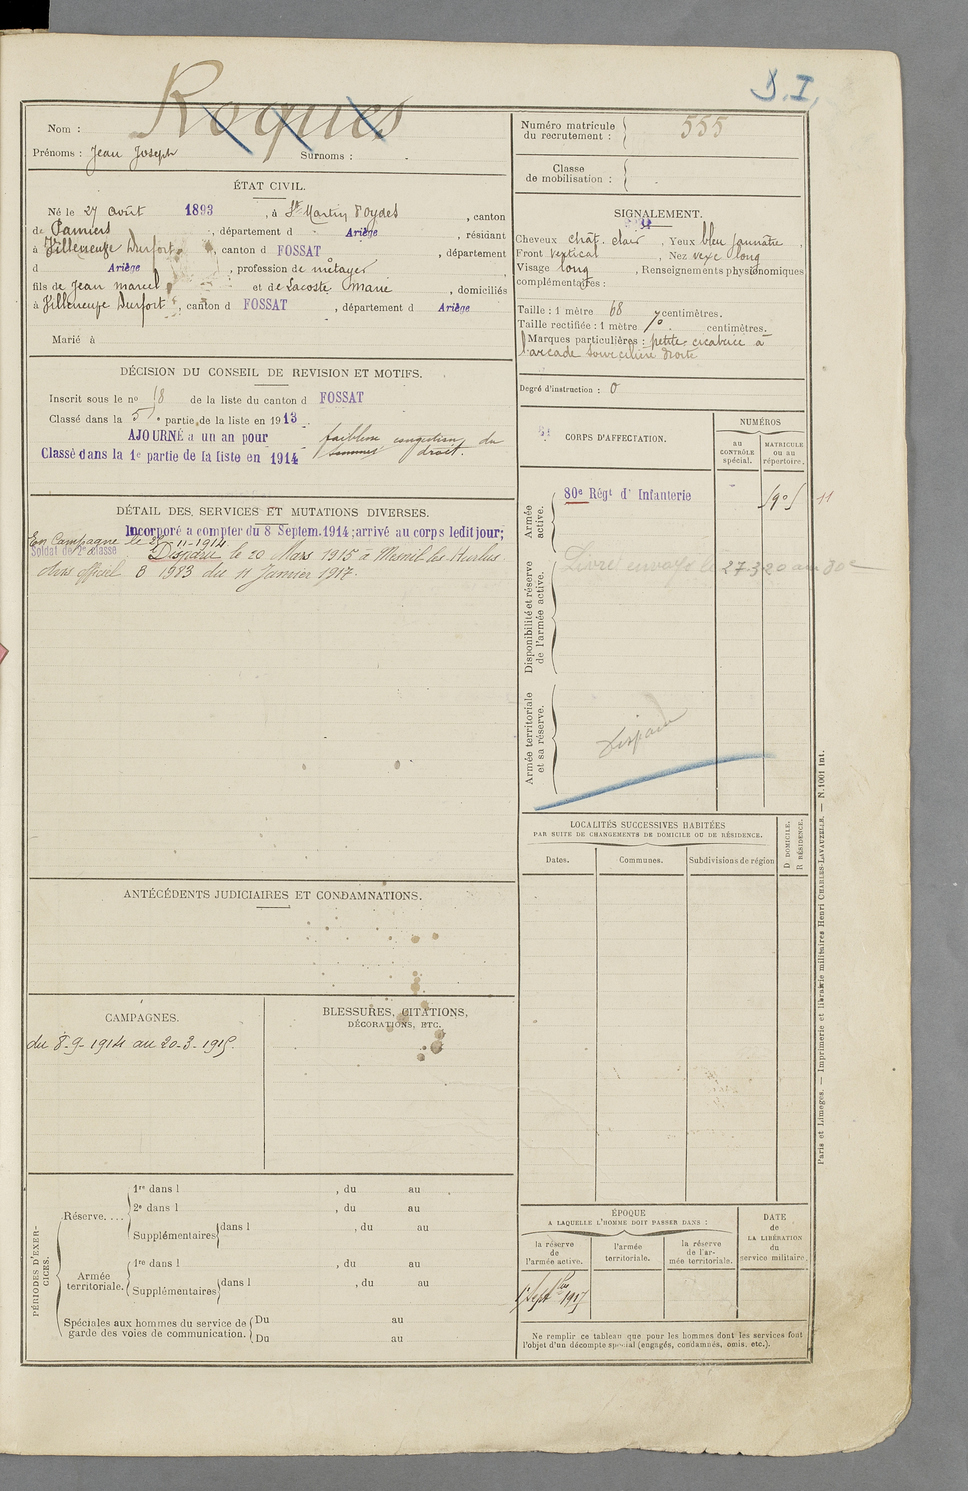 D. I.
Nom : Roques
Prénoms : Jean Joseph Surnoms : .
ÉTAT CIVIL.
Né le 27 août 1893, à St Martin d'Oydes, canton
de Pamiers, département d Ariège, résidant
à Villeneuve Durfort, canton d FOSSAT, département
d Ariège, profession de métayer
fils de Jean marcel et de Lacoste Marie, domiciliés
à Villeneuve Durfort, canton d FOSSAT, département d Ariège
Marié à
DÉCISION DU CONSEIL DE REVISION ET MOTIFS.
Inscrit sous le no 18 de la liste du canton d FOSSAT
Classé dans la 5e partie de la liste en 1913.
AJOURNÉ a un an pour faiblesse congestion du
Classé dans la 1e partie de la liste en 1914 sommet droit.
DÉTAIL DES SERVICES ET MUTATIONS DIVERSES.
Incorporé a compter du 8 Septem. 1914; arrivé au corps ledit jour;
En Campagne le 11-1914
Soldat de 2e classe Disparu le 20 Mars 1915 à Mesnil les Hurlus
avis officiel B 1983 du 11 Janvier 1917.
ANTÉCÉDENTS JUDICIAIRES ET CONDAMNATIONS.
CAMPAGNES.
du 8-9-1914 au 20-3-1915.
BLESSURES, CITATIONS,
DÉCORATIONS, ETC.
PÉRIODES D'EXER-
CICES.
Réserve....
1re dans l , du au
2e dans l , du au
Supplémentaires dans l , du au
Armée
territoriale.
1re dans l , du au
Supplémentaires dans l , du au
Spéciales aux hommes du service de
garde des voies de communication.
Du au
Du au
Numéro matricule
du recrutement : 555
Classe
de mobilisation :
SIGNALEMENT.
Cheveux chât. clair, Yeux bleu jaunâtre,
Front vertical, Nez vexe long
Visage long, Renseignements physionomiques
complémentaires :
Taille : 1 mètre 68 centimètres.
Taille rectifiée : 1 mètre 70. centimètres.
Marques particulières : petite cicatrice à
l'arcade sourcilière droite
Degré d'instruction : 0
CORPS D'AFFECTATION.
NUMÉROS
au
CONTRÔLE
spécial.
MATRICULE
ou au
répertoire.
Armée
active.
80e Régt d' Infanterie
11
Disponibilité et réserve
de l'armée active.
Livret envoyé le 27-3-20 au 80e
Armée territoriale
et sa réserve.
Disparu
LOCALITÉS SUCCESSIVES HABITÉES
PAR SUITE DE CHANGEMENTS DE DOMICILE OU DE RÉSIDENCE.
Dates.
Communes.
Subdivisions de région
D DOMICILE.
R RÉSIDENCE.
ÉPOQUE
A LAQUELLE L'HOMME DOIT PASSER DANS :
la réserve
de
l'armée active.
l'armée
territoriale.
la réserve
de l'ar-
mée territoriale.
DATE
de
LA LIBÉRATION
du
service militaire.
1917
Ne remplir ce tableau que pour les hommes dont les services font
l'objet d'un décompte spécial (engagés, condamnés, omis, etc.).
Paris et Limoges. — Imprimerie et librairie militaires Henri CHARLES-LAVAUZELLE. — N. 1001 int.